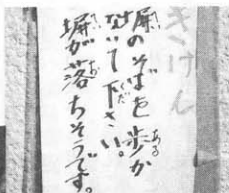 きけん
塀のそばを歩か
ないで下さい。
塀が落ちそうです。